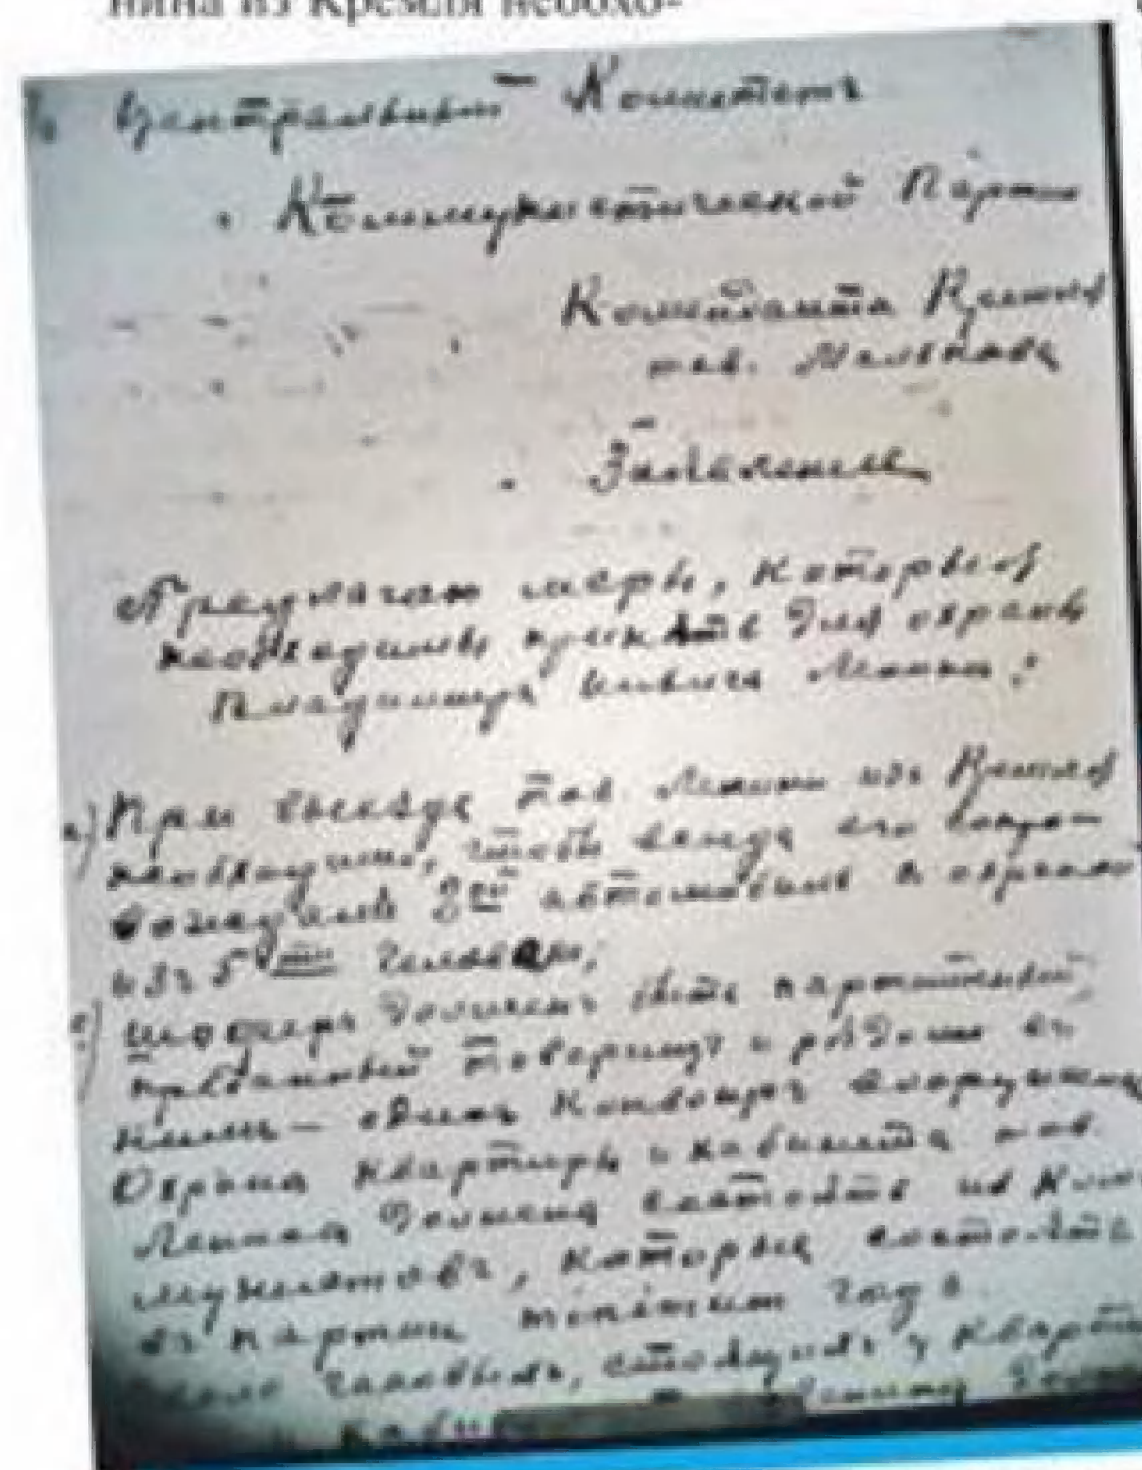 нина из Кремля необхо-
Центральный Комитетъ
Коммунистической Партии
Коменданта Кремля
тов. Малькова
Заявление
Предлагаю меры, которыя
необходимы принять для охраны
Владимира Ильича Ленина:
При выезде тов. Ленина изъ Кремля
необходимо, чтобы всегда его сопро-
вождалъ 2ой автомобиль с охраной
изъ 5ти человекъ;
шоферъ долженъ быть партийный,
преданный товарищъ и рядом съ
нимъ — один конвоиръ вооруженный
Охрана квартиры и кабинета тов.
Ленина должна состоять из Ком
мунистовъ, которые состоятъ
въ партии minimum годъ
часовымъ, стоящимъ у кварти